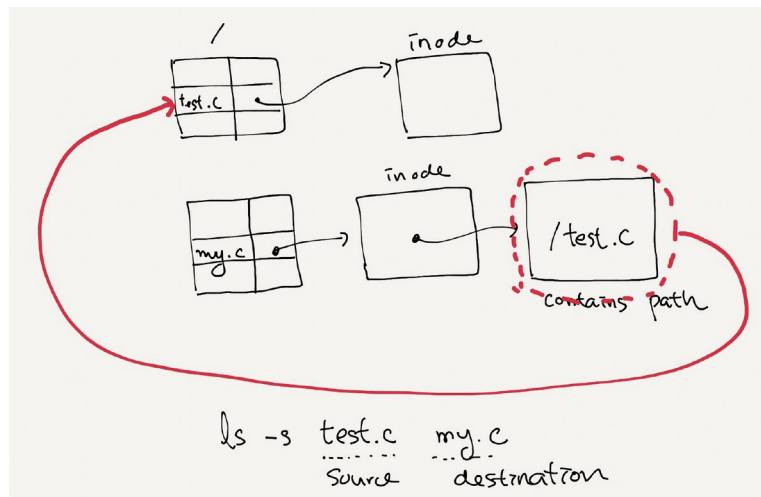 /
inode
test.c
inode
my.c
/test.c
contains path
ls -s test.c my.c
source destination